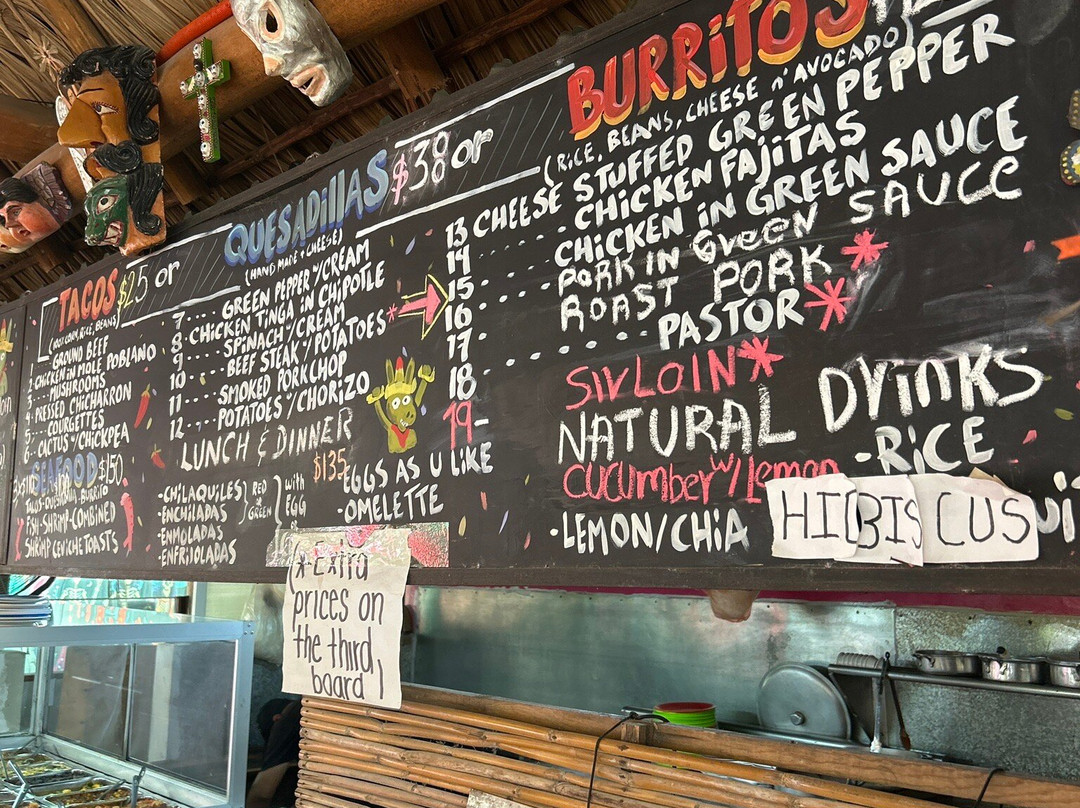 TACOS $25 or
(100% CORN, RICE, BEANS)
GROUND BEEF
CHICKEN IN MOLE POBLANO
MUSHROOMS
PRESSED CHICHARRON
5 COURGETTES
6 CACTUS w/CHICKPEA
SEAFOOD $150
BURRITO
FISH-SHRIMP-COMBINED
SHRIMP CEVICHE TOASTS
QUESADILLAS $38 or
(HAND MADE + CHEESE)
7 GREEN PEPPER w/CREAM
8 CHICKEN TINGA IN CHIPOTLE
9 SPINACH w/CREAM
10 BEEF STEAK w/POTATOES*
11 SMOKED PORKCHOP
12 POTATOES w/CHORIZO
LUNCH & DINNER
$135
-CHILAQUILES
-ENCHILADAS
-ENMOLADAS
-ENFRIJOLADAS
RED
GREEN
with
EGG
-EGGS AS U LIKE
-OMELETTE
BURRITOS
(RICE, BEANS, CHEESE n' AVOCADO)
13 CHEESE STUFFED GREEN PEPPER
14 CHICKEN FAJITAS
15 CHICKEN IN GREEN SAUCE
16 PORK IN Green SAUCE
17 ROAST PORK *
18 PASTOR *
19- SIRLOIN *
NATURAL DRINKS
CUCUMBER w/lemon
-RICE
•LEMON/CHIA
HIBISCUS
*-Extra
prices on
the third
board